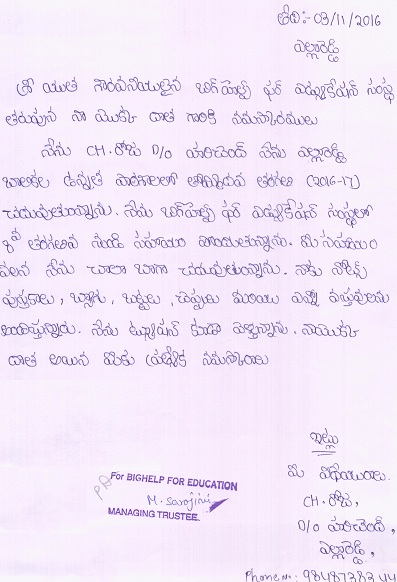 తేది:- 03/11/2016
ఎల్లారెడ్డి
శ్రీ యుత గౌరవనీయులైన బిగ్‌హెల్ప్ ఫర్ ఎడ్యుకేషన్ సంస్థ
తరుపున నా యొక్క దాత గారికి నమస్కారములు
నేను CH. రోజా D/o హరిచంద్ నేను ఎల్లారెడ్డి
బాలికల ఉన్నత పాఠశాలలో తొమ్మిదవ తరగతి (2016-17)
చదువుతున్నాను. నేను బిగ్‌హెల్ప్ ఫర్ ఎడ్యుకేషన్ సంస్థలో
8వ తరగతి నుండి సహాయం పొందుతున్నాను. మీ సహాయం
వలన నేను చాలా బాగా చదువుతున్నాను. నాకు నోట్స్
పుస్తకాలు, బ్యాగు, బట్టలు, చెప్పులు మరియు ఎన్నో వస్తువులను
ఇస్తున్నారు. నేను ట్యూషన్ కూడా వెళ్తున్నాను. నాయొక్క
దాత అయిన మీకు ప్రత్యేక నమస్కారాలు
ఇట్లు
మీ విధేయురాలు.
CH. రోజా,
D/o హరిచంద్,
ఎల్లారెడ్డి,
Phone No: 9848738344
For BIGHELP FOR EDUCATION
M. Sarojini
MANAGING TRUSTEE.